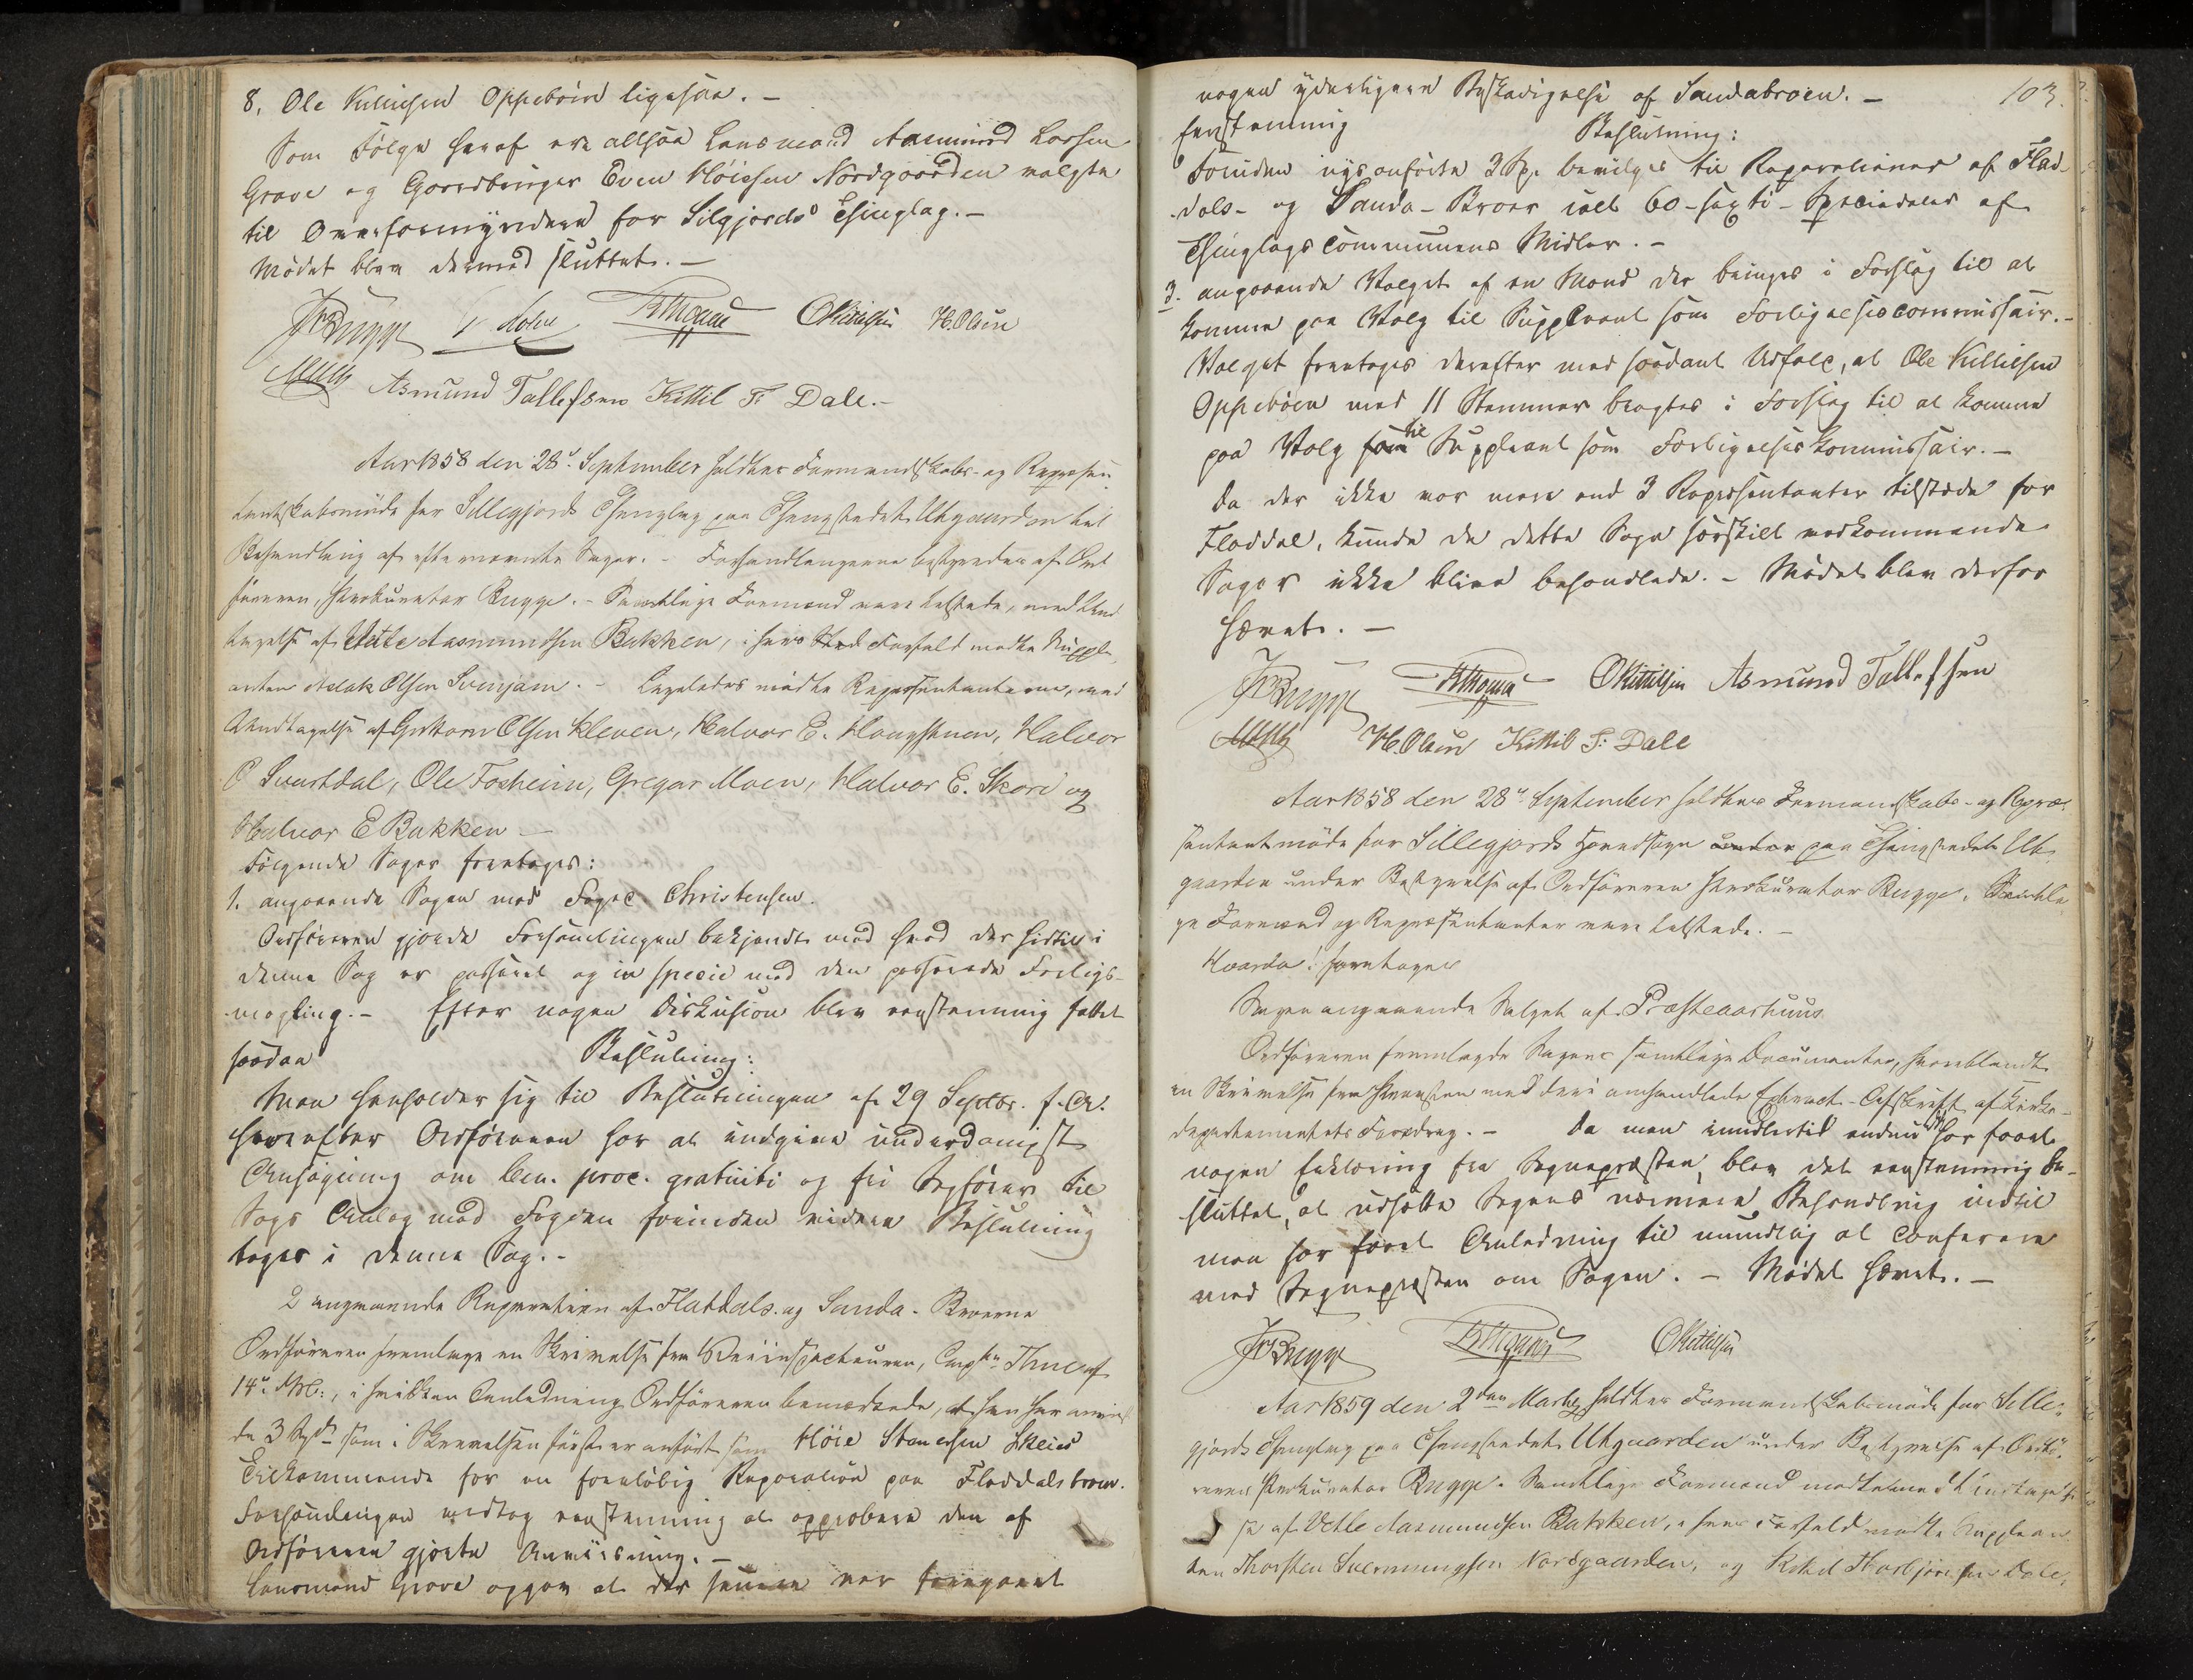 8. Ole Killiksen Oppebøen ligesaa. –
Som Følge heraf ere altsaa Lensmand Aasmund Larsen
Grave og Gaardbruger Even Høiesen Nordgaarden valgte
til Overformyndere for Silgjords Thinglag. –
Mødet blev dermed sluttet. –
JNBugge OKittilsen H. Olsen
Asmund Tallefsen Kittil T: Dale. –
Aar 1858 den 28de September holdtes Formandskabs- og Repræsen
tantskabsmøde for Sillegjords Thinglag paa Thingstedet Utgaarden til
Behandling af eftenævnte Sager. – Forhandlingerne bestyredes af Ord
føreren, Prokurator Bugge. – Samtlige Formænd vare tilstede, med Und
tagelse af Vetle Aasmundsen Bakken, i hans Sted Forfald mødte Supple
anten Aslak Olsen Svinjam. – Ligeledes mødte Repræsentanterne, med
Undtagelse af Guttorm Olsen Kleven, Halvor E. Haugstuen, Halvor
O Svartdal, Ole Fosheim, Gregar Moen, Halvor E. Skori og
Halvor E Bakken –
Følgende Sager foretoges:
1. angaaende Sagen mod Foged Christensen.
Ordføreren gjorde Forsamlingen bekjendt med hvad der hidtil i
denne Sag er passeret og in specie med den passerede Forligs-
mægling. – Efter nogen Diskusion blev eenstemmig fattet
saadan Beslutning:
Man henholder sig til Beslutningen af 29 Septbr. f. A.
hvorefter Ordføreren har at indgive underdanigst
Ansøgning om ben. proc. gratuiti og fri Sagfører til
Sags Anlæg mod Fogden forinden videre Beslutning
tages i denne Sag. –
2 angaaende Reparation af Flatdals- og Sanda-Broerne
Ordføreren fremlagde en Skrivelse fra Veiinspecteuren, Captn Thue af
14de d.M:, i hvilken Anledning Ordføreren bemærkede, at han har anviist
de 3 Spd som i Skrivelsen først er anført som Høie Stenersen Skeies
Tilkommende for en foreløbig Reparation paa Fladdalsbroen.
Forsamlingen vedtog eenstemmig at approbere den af
Ordføreren gjorte Anviisning. –
Lensmand Grave opgav at der senere var foregaaet
103.
nogen yderligere Beskadigelse af Sandabroen. –
Eenstemmig Beslutning:
Foruden nysanførte 3 Sp. bevilges til Reparationer af Flad-
dals- og Sanda-Broer ialt 60 – sexti – Speciedaler af
Thinglagscommunens Midler. –
3. angaaende Valget af en Mand der bringes i Forslag til at
komme paa Valg til Suppleant som Forligelsescommissair. –
Valget foretoges derefter med saadant Udfald, at Ole Killiksen
Oppebøen med 11 Stemmer bragtes i Forslag til at komme
paa Valg som til Suppleant som Forligelses Kommissair. –
Da der ikke var mere end 3 Repræsentanter tilstede for
Fladdal, kunde de dette Sogn særskilt vedkommende
Sager ikke blive behandlede. – Mødet blev derfor
hævet. –
JNBugge OKittilsen Asmund Tallefsen
H. Olsen Kittil T: Dale
Aar 1858 den 28de September holdtes Formandskabs- og Repræ-
sentantmøde for Sillegjords Hovedsogn under paa Thingstedet Ut-
gaarden under Bestyrelse af Ordføreren Prokurator Bugge. Samtli
ge Formænd og Repræsentanter vare tilstede. –
Hvorda! foretoges
Sagen angaaende Salget af Præsteaarhuus
Ordføreren fremlagde Sagens samtlige Documenter, hvoriblandt
en Skrivelse fra Provsten med deri omhandlede Extract-Afskrift af Kirke-
departementets Foredrag. – Da man imidlertid endnu ei har faaet
nogen Erklæring fra Sognepræsten, blev det eenstemmig be-
sluttet, at udsætte Sagens nærmere Behandling indtil
man har faaet Anledning til mundtlig at conferere
med Sognepræsten om Sagen. – Mødet hævet. –
JNBugge OKittilsen
Aar 1859 den 2den Marts holdtes Formandskabsmøde for Sille-
gjords Thinglag paa Thingstedet Utgaarden under Bestyrelse af Ordfø-
reren Prokurator Bugge. Samtlige Formænd mødte med Undtagel
se af Vetle Aasmundsen Bakken, i hvis Forfald mødte Supplean
ten Thorsten Sveinungsen Nordgaarden, og Kittel Thorbjørnsen Dale,